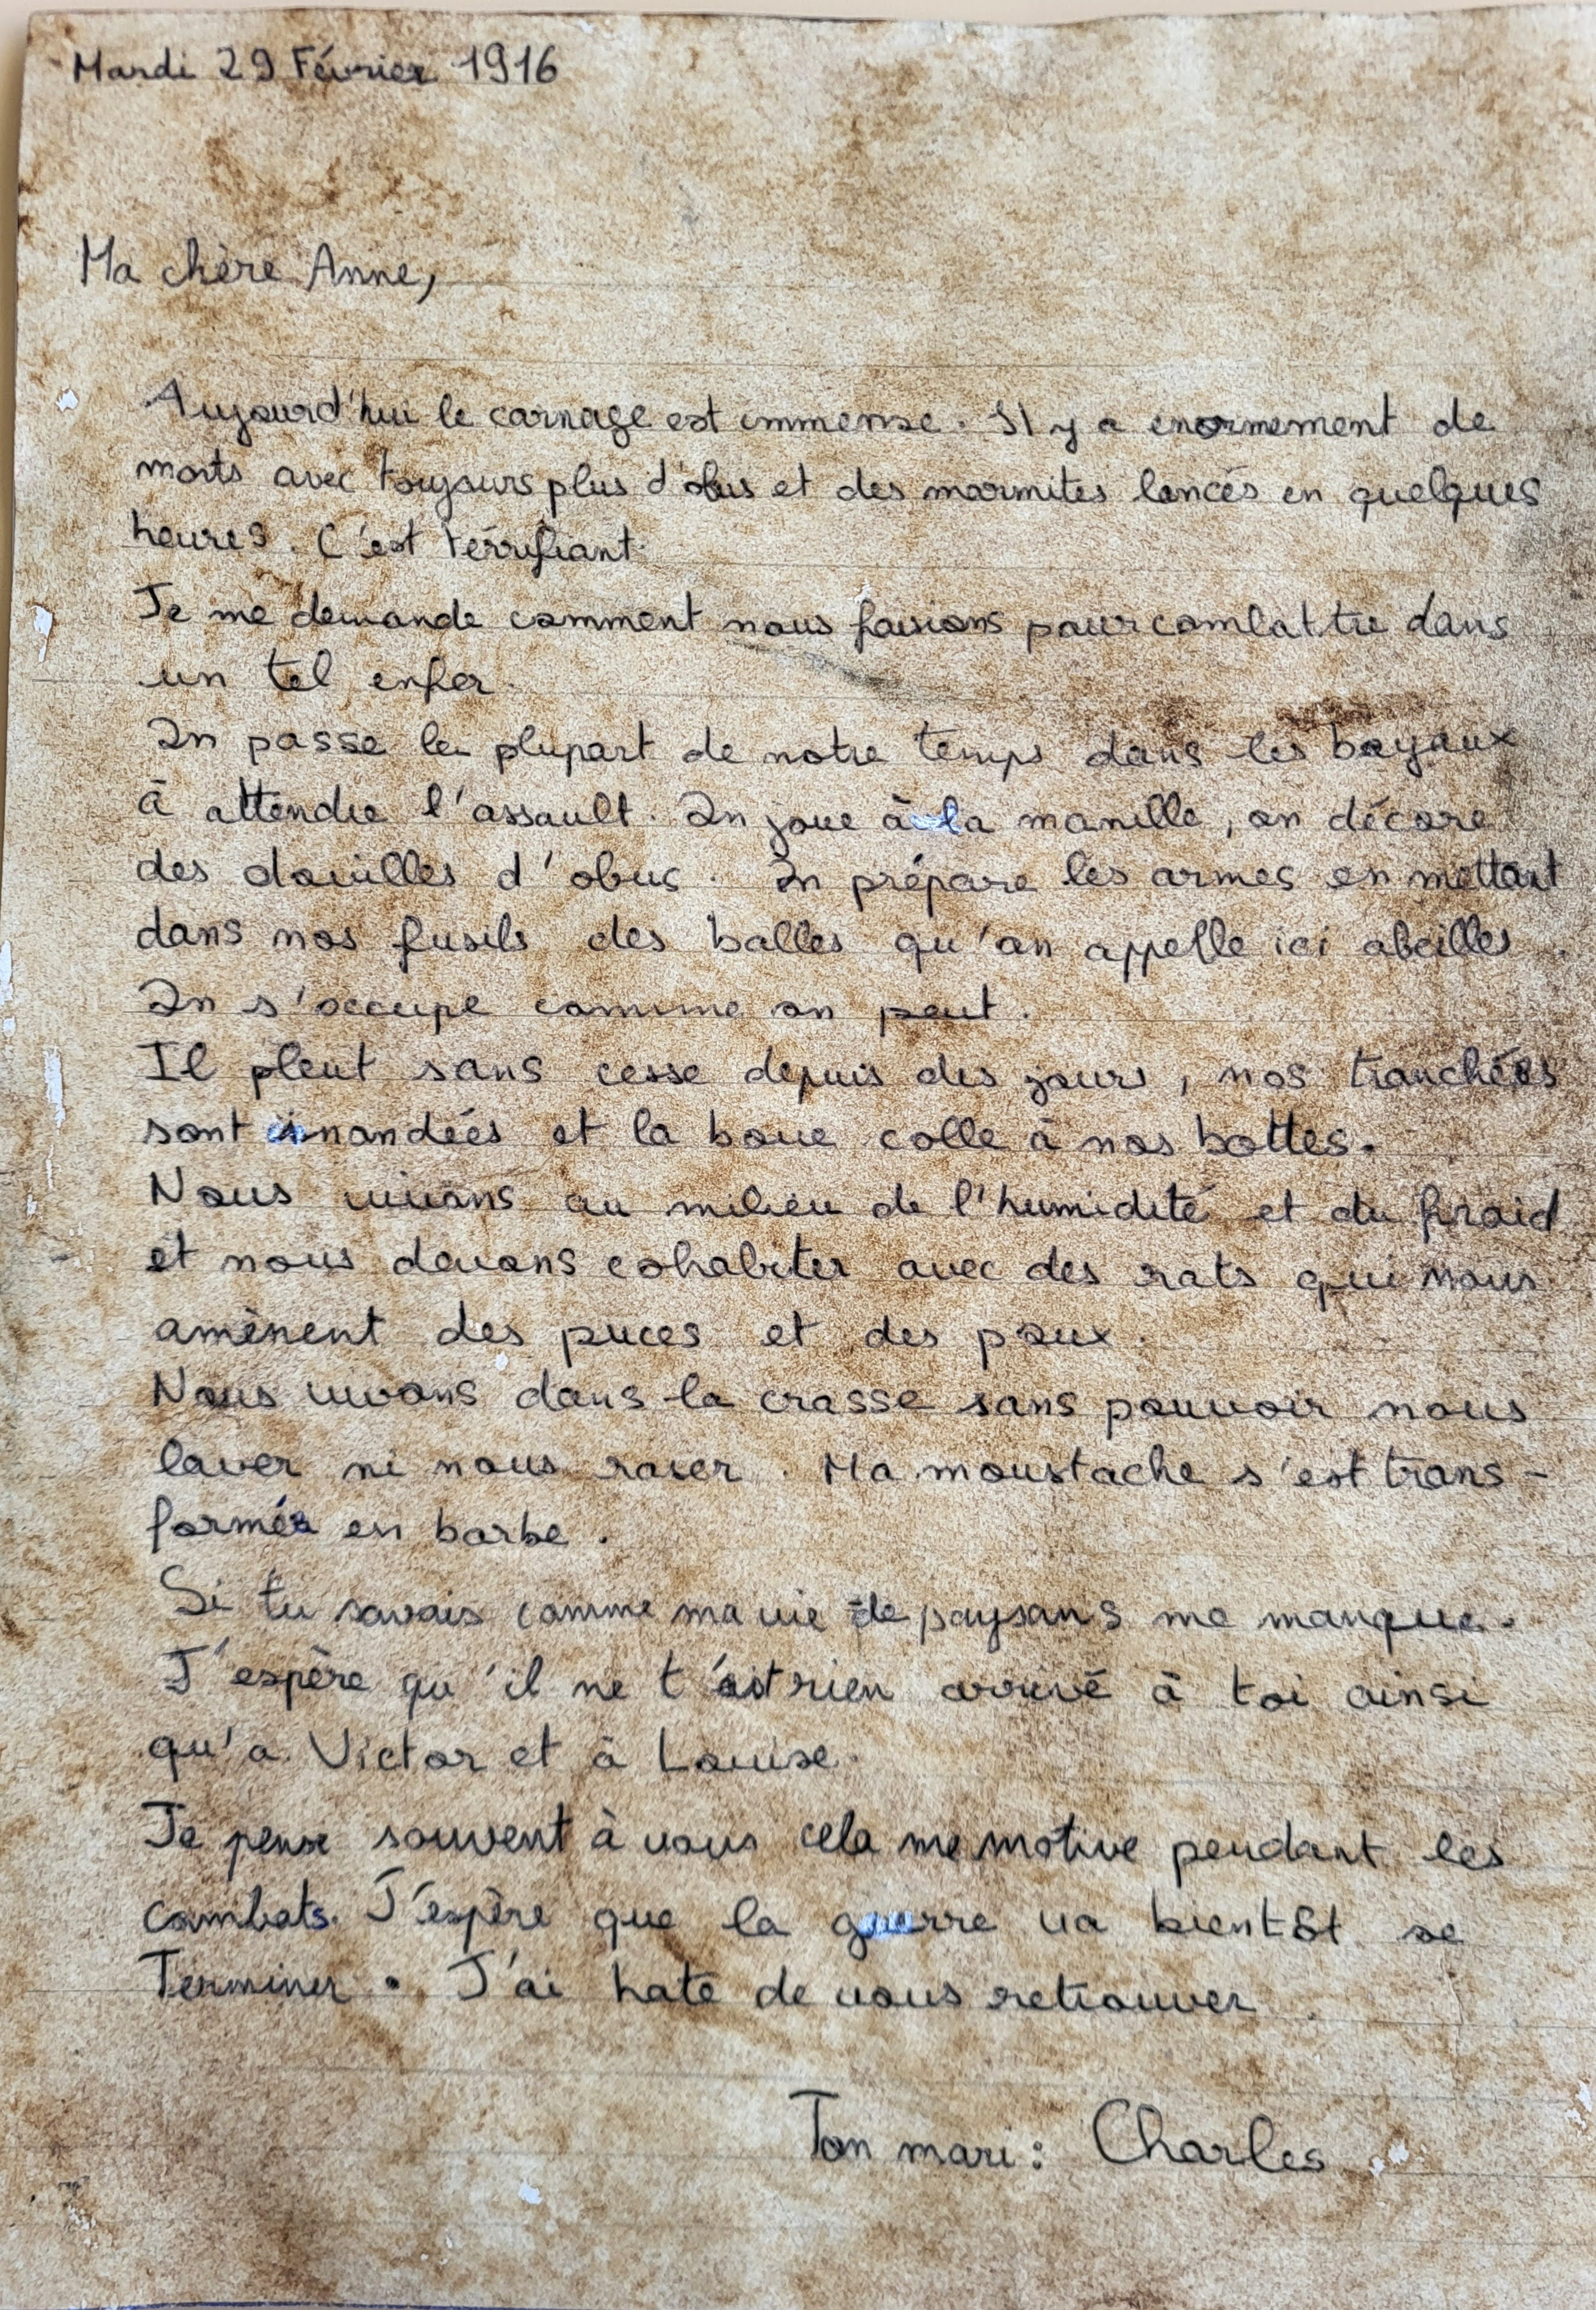 Mardi 29 Février 1916
Ma chère Anne,
Aujourd'hui le carnage est immense. Il y a enormement de
morts avec toujours plus d'obus et des marmites lancés en quelques
heures. C'est térrifiant.
Je me demande comment nous faisions pour combattre dans
un tel enfer.
On passe la plupart de notre temps dans les boyaux
à attendre l'assault. On joue à la manille, on décore
des douilles d'obus. On prépare les armes en mettant
dans nos fusils des balles qu'on appelle ici abeilles.
On s'occupe comme on peut.
Il pleut sans cesse depuis des jours, nos tranchées
sont inondées et la boue colle à nos bottes.
Nous vivons au milieu de l'humidité et du froid
et nous devons cohabiter avec des rats qui nous
amènent des puces et des poux.
Nous vivons dans la crasse sans pouvoir nous
laver ni nous raser. Ma moustache s'est trans-
formée en barbe.
Si tu savais comme ma vie de paysans me manque.
J'espère qu'il ne t'est rien arrivé à toi ainsi
qu'a Victor et à Louise.
Je pense souvent à vous cela me motive pendant les
combats. J'espère que la guerre va bientôt se
Terminer. J'ai hate de vous retrouver.
Ton mari: Charles